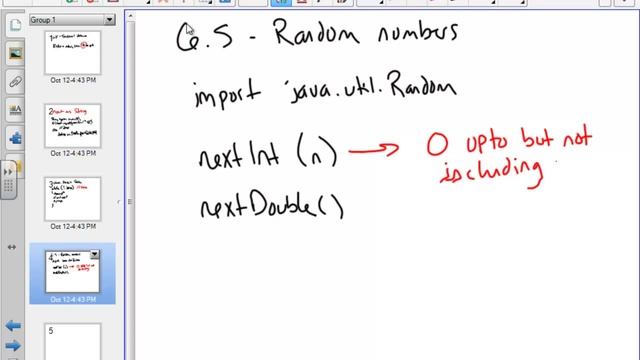 Group 1
Oct 12-4:43 PM
Oct 12-4:43 PM
Oct 12-4:43 PM
Oct 12-4:43 PM
5
6.5 - Random numbers
import java.util.Random
nextInt (n) → 0 upto but not
including
nextDouble()